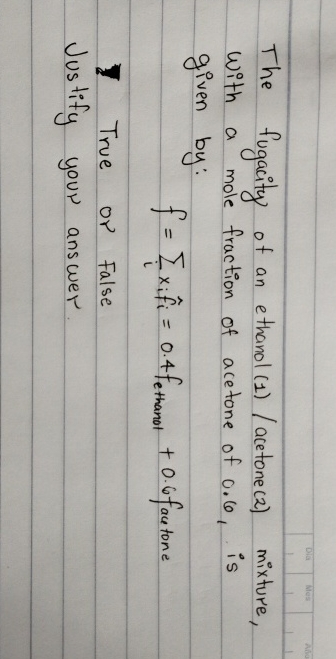 Día Mes Año
The fugacity of an ethanol(1) /acetone(2) mixture,
with a mole fraction of acetone of 0.6, is
given by:
f = Σi xi f̂i = 0.4 fethanol + 0.6 facetone
True or False
Justify your answer.